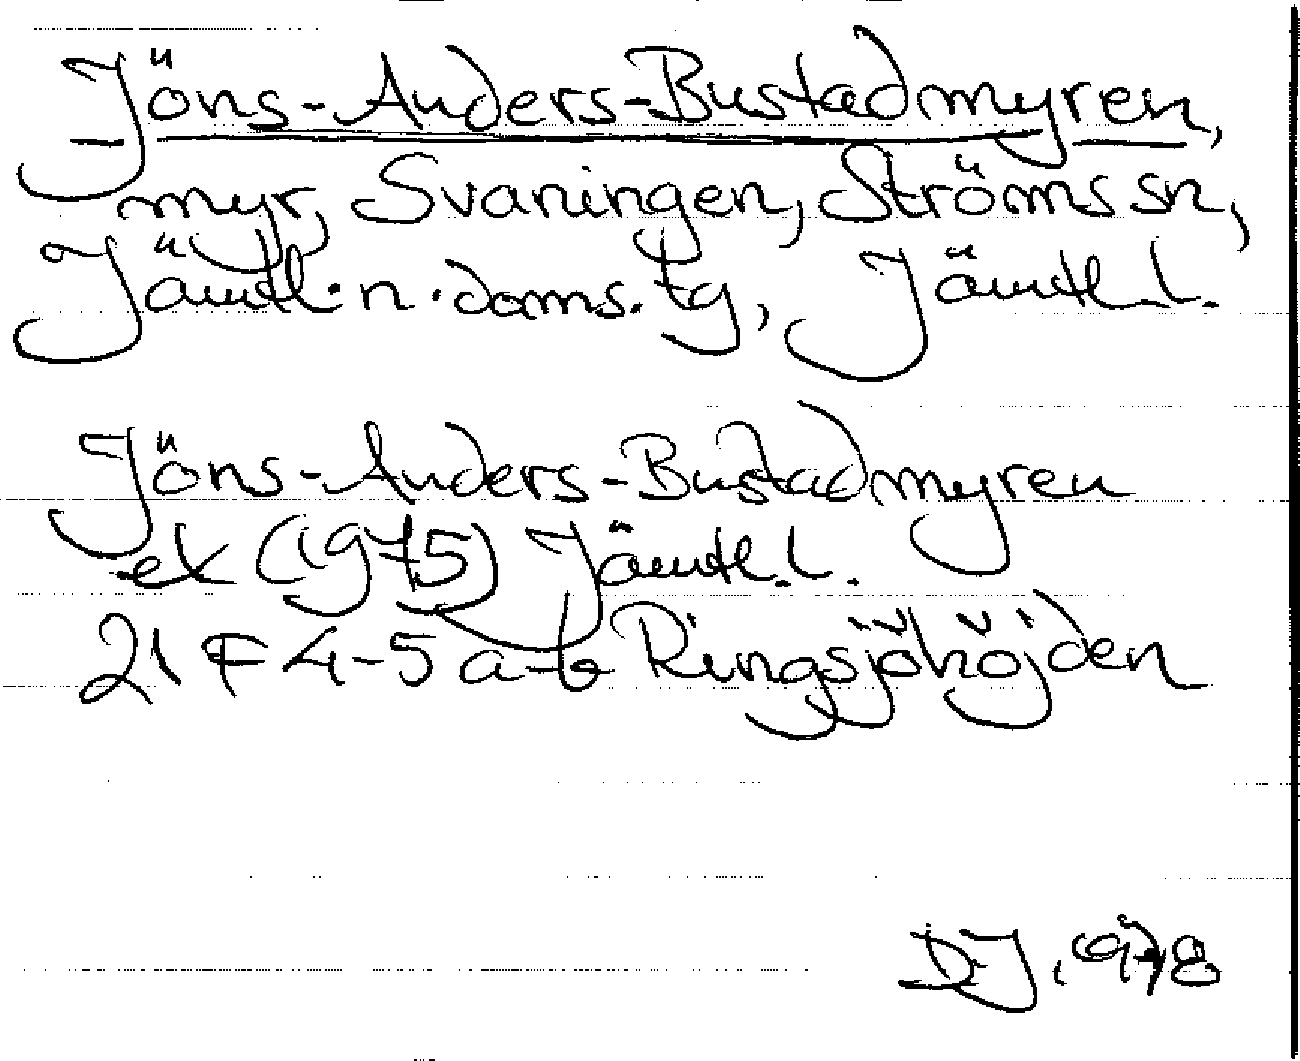 Jöns-Anders-Bustadmyren,
myr, Svaningen, Ströms sn,
Jämtl. n. doms. tg, Jämtl. l.
Jöns-Anders-Bustadmyren
ek (1975) Jämtl. l.
21 F 4-5 a-b Ringsjöhöjden
DJ, 1978